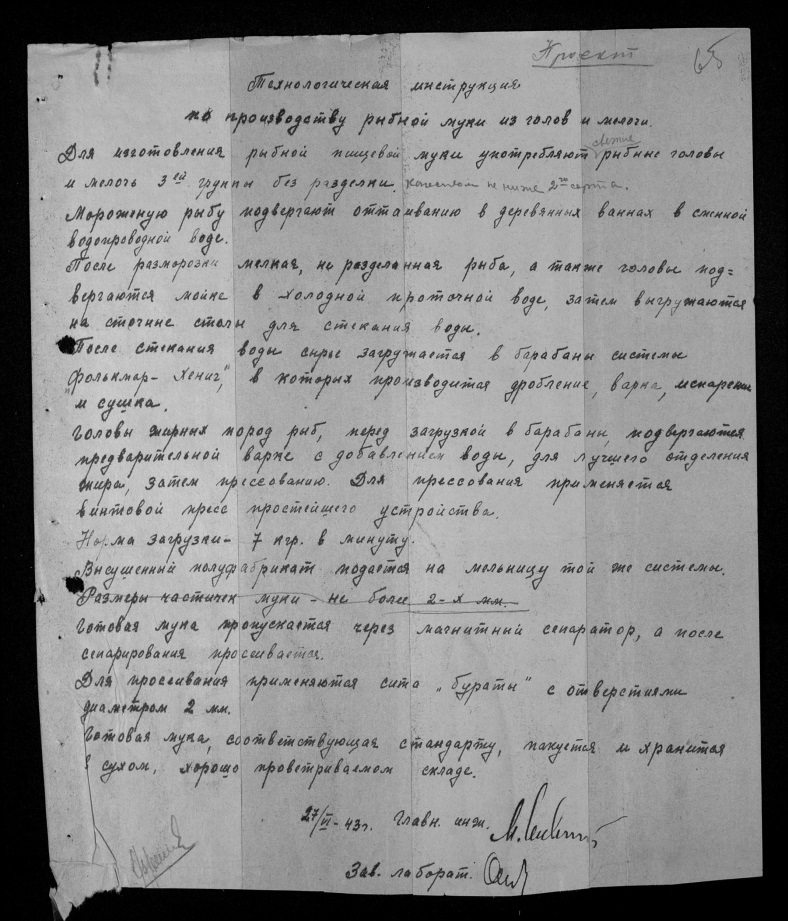 Проект
65
Технологическая инструкция
по производству рыбной муки из голов и мелочи.
Для изготовления рыбной пищевой муки употребляют свежие рыбные головы
и мелочь 3ей группы без разделки, качеством не ниже 2го сорта.
Мороженую рыбу подвергают оттаиванию в деревянных ваннах в сменной
водопроводной воде.
После разморозки мелкая, не разделанная рыба, а также головы под=
вергаются мойке в холодной проточной воде, затем выгружаются
на сточные столы для стекания воды.
После стекания воды сырье загружается в барабаны системы
„Фолькмар- Хениг", в которых производится дробление, варка, испарение
и сушка.
Головы жирных пород рыб, перед загрузкой в барабаны, подвергаются
предварительной варке с добавлением воды, для лучшего отделения
жира, затем прессованию. Для прессования применяется
винтовой пресс простейшего устройства.
Норма загрузки- 7 кгр. в минуту.
Высушенный полуфабрикат подается на мельницу той же системы.
Размеры частичек муки - не более 2-х мм.
Готовая мука пропускается через магнитный сепаратор, а после
сепарирования просеивается.
Для просеивания применяются сита „бураты" с отверстиями
диаметром 2 мм.
Готовая мука, соответствующая стандарту, пакуется и хранится
в сухом, хорошо проветриваемом складе.
27/VI-43г. Главн. инж.
Зав. лаборат.